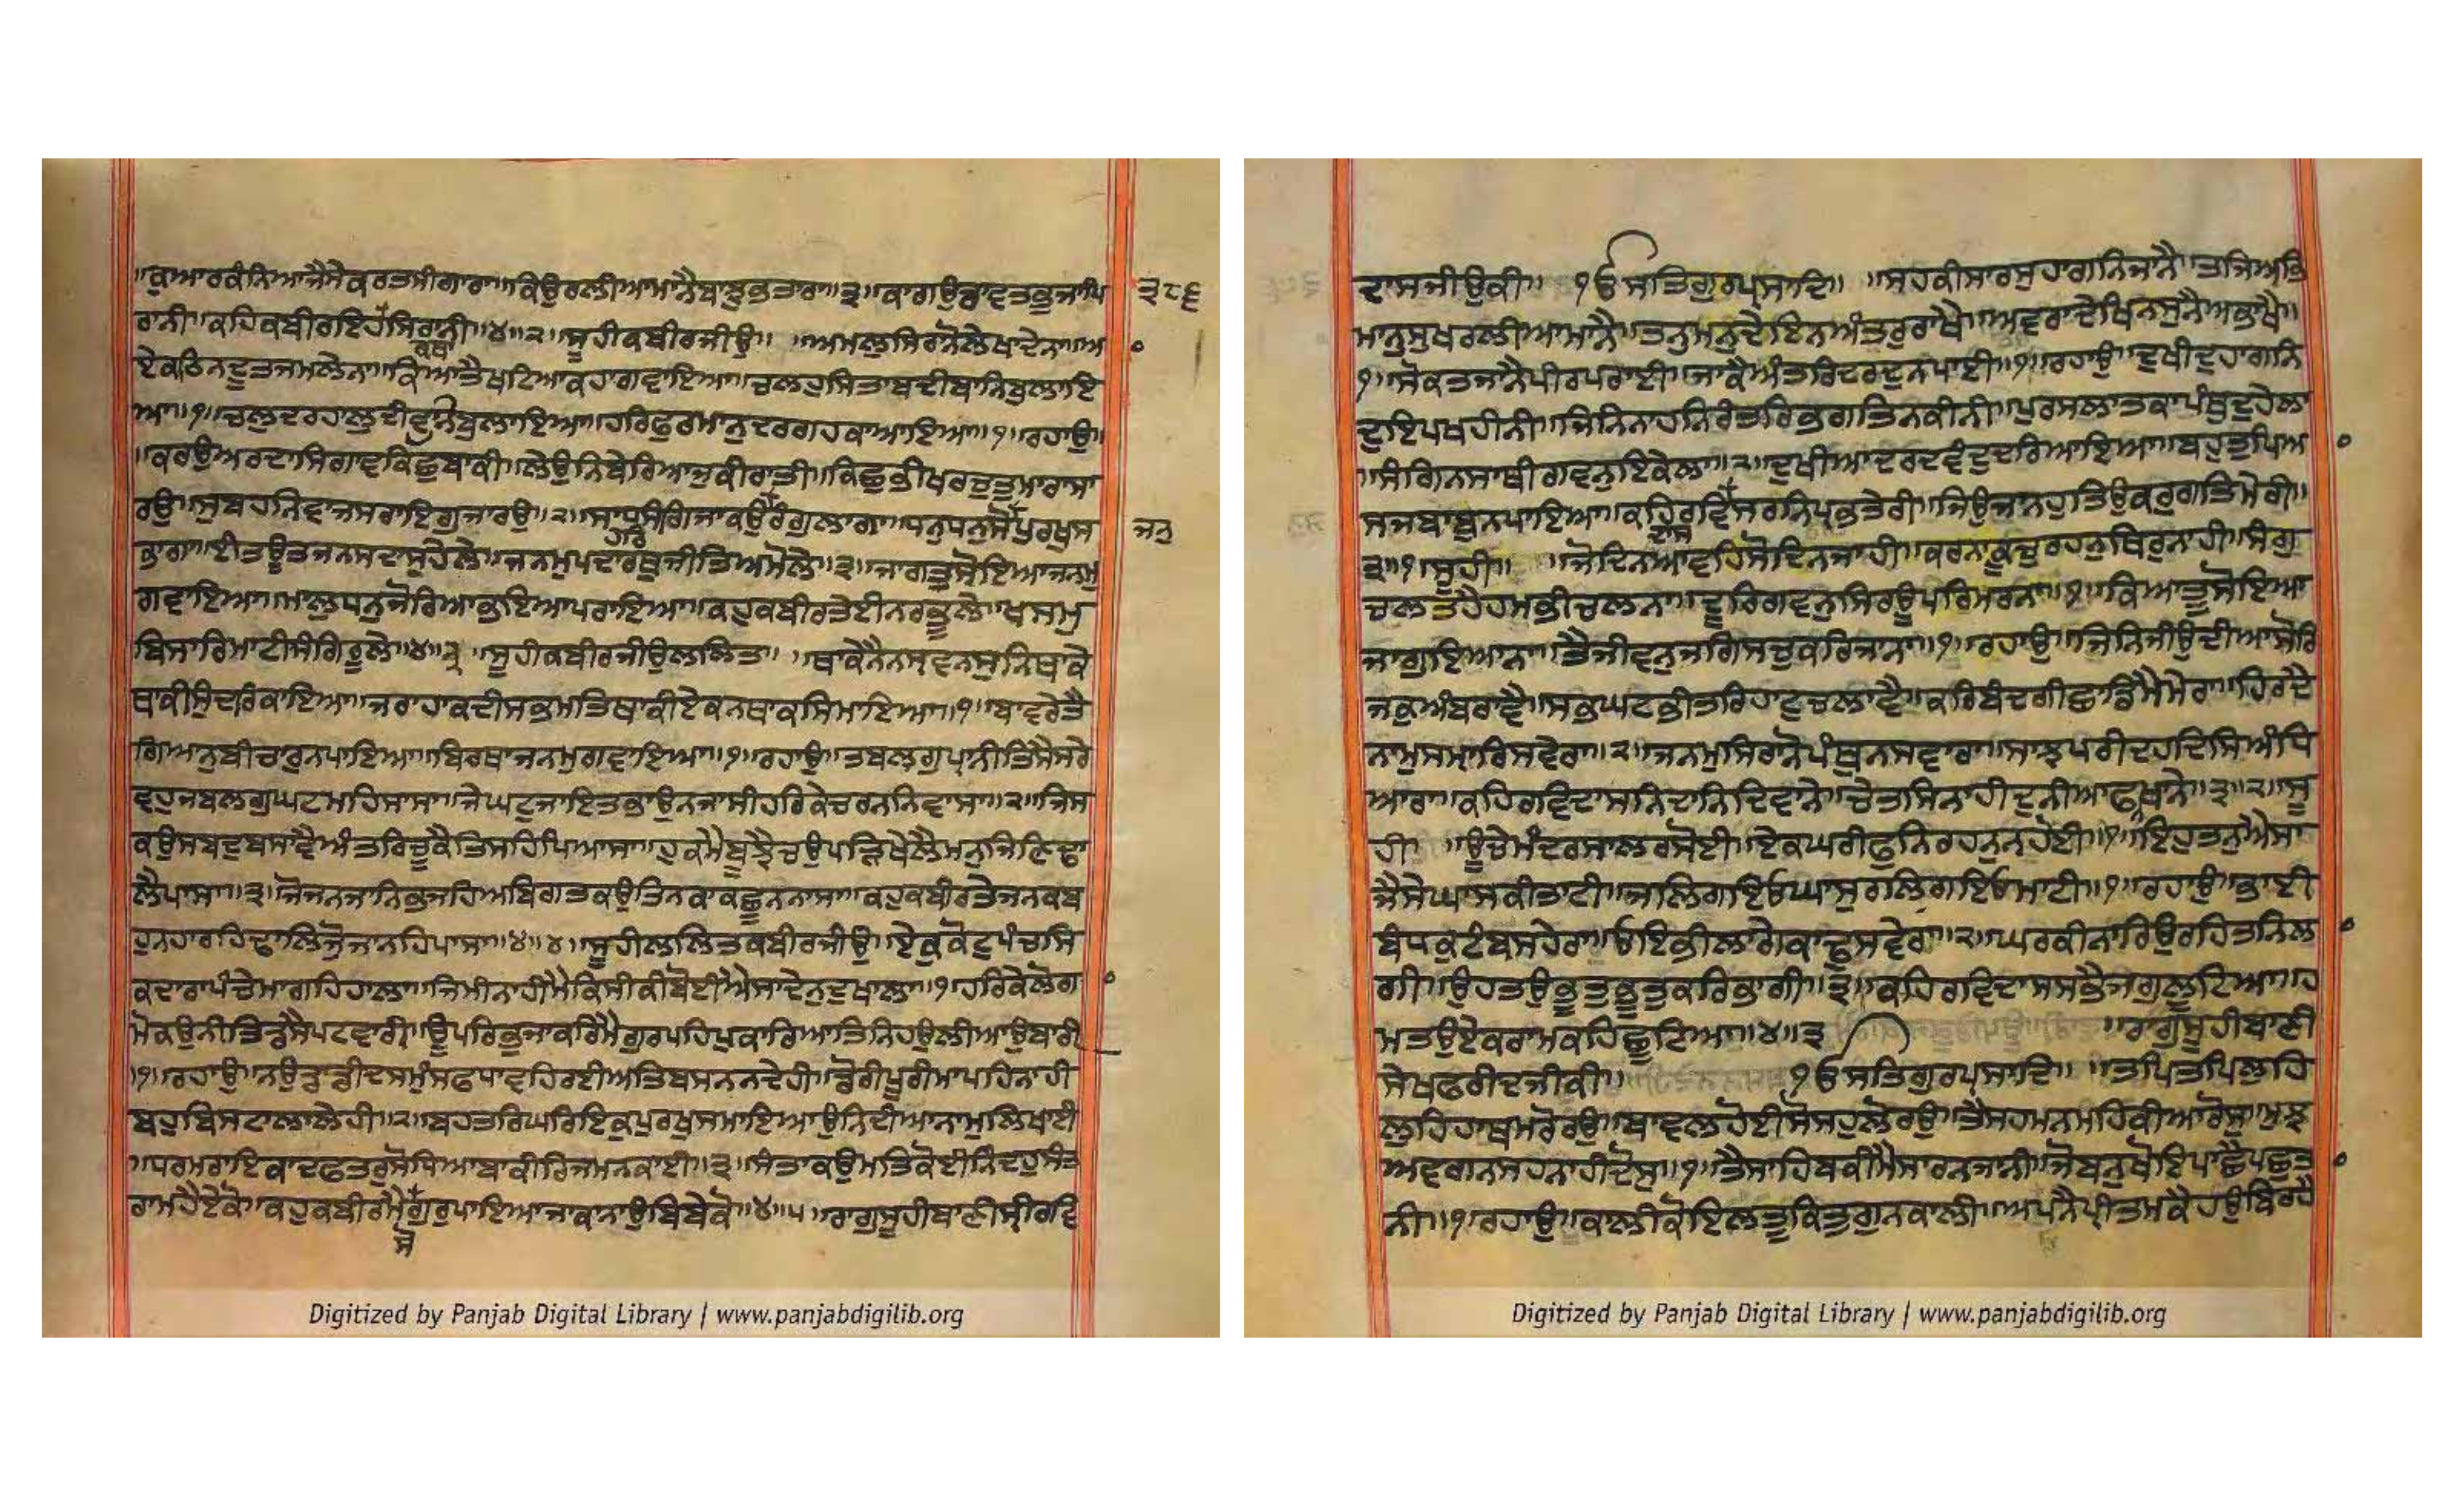 ॥ਕੁਆਰਕੰਨਿਆਜੈਸੇਕਰਤਸੀਗਾਰਾ॥ਕਿਉਰਲੀਆਮਾਨੈਬਾਝੁਭਤਾਰਾ॥੩॥ਕਾਗਉਡਾਵਤਭੁਜਾਪਿ
੩੮੬
ਰਾਨੀ॥ਕਹਿਕਬੀਰਇਹਸਿਰਾਨੀ॥੪॥੨॥ਸੂਹੀਕਬੀਰਜੀਉ॥ ॥ਅਮਲੁਸਿਰਾਨੋਲੇਖਾਦੇਨਾ॥ਆ
ਕਥਾ
ਏਕਠਿਨਦੂਤਜਮਲੇਨਾ॥ਕਿਆਤੈਖਟਿਆਕਹਾਗਵਾਇਆ॥ਚਲਹੁਸਿਤਾਬਦੀਬਾਨਿਬੁਲਾਇ
ਆ॥੧॥ਚਲੁਦਰਹਾਲੁਦੀਵਾਨਿਬੁਲਾਇਆ॥ਹਰਿਫੁਰਮਾਨੁਦਰਗਹਕਾਆਇਆ॥੧॥ਰਹਾਉ॥
॥ਕਰਉਅਰਦਾਸਿਗਾਵਕਿਛੁਬਾਕੀ॥ਲੇਉਨਿਬੇਰਿਆਜੁਕੀਰਾਤੀ॥ਕਿਛੁਭੀਖਰਚੁਤੁਮਾਰਾਸਾ
ਰਉ॥ਸੁਬਹਨਿਵਾਜਸਰਾਇਗੁਜਾਰਉ॥੨॥ਸਾਧਸੰਗਿਜਾਕਉਰੰਗੁਲਾਗਾ॥ਧਨੁਧਨੁਸੋਪੁਰਖੁਸ
ਜਨੁ
ਹਰਿ
ਭਾਗਾ॥ਈਤਊਤਜਨਸਦਾਸੁਹੇਲੇ॥ਜਨਮੁਪਦਾਰਥੁਜੀਤਿਅਮੋਲੇ॥੩॥ਜਾਗਤੁਸੋਇਆਜਨਮੁ
ਗਵਾਇਆ॥ਮਾਲੁਧਨੁਜੋਰਿਆਭਇਆਪਰਾਇਆ॥ਕਹੁਕਬੀਰਤੇਈਨਰਭੂਲੇ॥ਖਸਮੁ
ਬਿਸਾਰਿਮਾਟੀਸੰਗਿਰੂਲੇ॥੪॥੩॥ਸੂਹੀਕਬੀਰਜੀਉਲਲਿਤ॥ ॥ਥਾਕੇਨੈਨਸ੍ਰਵਨਸੁਨਿਥਾਕੇ
ਥਾਕੀਸੁੰਦਰਿਕਾਇਆ॥ਜਰਾਹਾਕਦੀਸਭਮਤਿਥਾਕੀਏਕਨਥਾਕਸਿਮਾਇਆ॥੧॥ਬਾਵਰੇਤੈ
ਗਿਆਨੁਬੀਚਾਰੁਨਪਾਇਆ॥ਬਿਰਥਾਜਨਮੁਗਵਾਇਆ॥੧॥ਰਹਾਉ॥ਤਬਲਗੁਪ੍ਰਾਨੀਤਿਸੈਸਰੇ
ਵਹੁਜਬਲਗੁਘਟਮਹਿਸਾਸਾ॥ਜੇਘਟੁਜਾਇਤਭਾਉਨਜਾਸੀਹਰਿਕੇਚਰਨਨਿਵਾਸਾ॥੨॥ਜਿਸ
ਕਉਸਬਦੁਬਸਾਵੈਅੰਤਰਿਚੂਕੈਤਿਸਹਿਪਿਆਸਾ॥ਹੁਕਮੈਬੂਝੈਚਉਪੜਿਖੇਲੈਮਨੁਜਿਣਿਢਾ
ਲੈਪਾਸਾ॥੩॥ਜੋਜਨਜਾਨਿਭਜਹਿਅਬਿਗਤਕਉਤਿਨਕਾਕਛੂਨਨਾਸਾ॥ਕਹੁਕਬੀਰਤੇਜਨਕਬ
ਹੁਨਹਾਰਹਿਢਾਲਿਜੁੋਜਾਨਹਿਪਾਸਾ॥੪॥੪॥ਸੂਹੀਲਲਿਤਕਬੀਰਜੀਉ॥ਏਕੁਕੋਟੁਪੰਚਸਿ
ਕਦਾਰਾਪੰਚੇਮਾਗਹਿਹਾਲਾ॥ਜਿਮੀਨਾਹੀਮੈਕਿਸੀਕੀਬੋਈਐਸਾਦੇਨੁਦੁਖਾਲਾ॥੧॥ਹਰਿਕੇਲੋਗਾ
ਮੋਕਉਨੀਤਿਡਸੈਪਟਵਾਰੀ॥ਊਪਰਿਭੁਜਾਕਰਿਮੈਗੁਰਪਹਿਪੁਕਾਰਿਆਤਿਨਿਹਉਲੀਆਉਬਾਰੀ
॥੧॥ਰਹਾਉ॥ਨਉਡਾਡੀਦਸਮੁੰਸਫਧਾਵਹਿਰਈਅਤਿਬਸਨਨਦੇਹੀ॥ਡੋਰੀਪੂਰੀਮਾਪਹਿਨਾਹੀ
ਬਹੁਬਿਸਟਾਲਾਲੇਹੀ॥੨॥ਬਹਤਰਿਘਰਿਇਕੁਪੁਰਖੁਸਮਾਇਆਉਨਿਦੀਆਨਾਮੁਲਿਖਾਈ
॥ਧਰਮਰਾਇਕਾਦਫਤਰੁਸੋਧਿਆਬਾਕੀਰਿਜਮਨਕਾਈ॥੩॥ਸੰਤਾਕਉਮਤਿਕੋਈਨਿੰਦਹੁਸੰਤ
ਰਾਮਹੈਏਕੋ॥ਕਹੁਕਬੀਰਮੈਗੁਰੁਪਾਇਆਜਾਕਾਨਾਉਬਿਬੇਕੋ॥੪॥੫॥ਰਾਗੁਸੂਹੀਬਾਣੀਸ੍ਰੀਰਵਿ
ਸੋ
Digitized by Panjab Digital Library | www.panjabdigilib.org
ਦਾਸਜੀਉਕੀ॥ ੴਸਤਿਗੁਰਪ੍ਰਸਾਦਿ॥ ॥ਸਹਕੀਸਾਰਸੁਹਾਗਨਿਜਾਨੈ॥ਤਜਿਅਭਿ
ਮਾਨੁਸੁਖਰਲੀਆਮਾਨੈ॥ਤਨੁਮਨੁਦੇਇਨਅੰਤਰੁਰਾਖੈ॥ਅਵਰਾਦੇਖਿਨਸੁਨੈਅਭਾਖੈ॥
੧॥ਸੋਕਤਜਾਨੈਪੀਰਪਰਾਈ॥ਜਾਕੈਅੰਤਰਿਦਰਦੁਨਪਾਈ॥੧॥ਰਹਾਉ॥ਦੁਖੀਦੁਹਾਗਨਿ
ਦੁਇਪਖਹੀਨੀ॥ਜਿਨਿਨਾਹਨਿਰੰਤਰਿਭਗਤਿਨਕੀਨੀ॥ਪੁਰਸਲਾਤਕਾਪੰਥੁਦੁਹੇਲਾ
॥ਸੰਗਿਨਸਾਥੀਗਵਨੁਇਕੇਲਾ॥੨॥ਦੁਖੀਆਦਰਦਵੰਦੁਦਰਿਆਇਆ॥ਬਹੁਤੁਪਿਆ
ਸਜਬਾਬੁਨਪਾਇਆ॥ਕਹਿਰਵਿਸਰਨਿਪ੍ਰਭਤੇਰੀ॥ਜਿਉਜਾਨਹੁਤਿਉਕਰੁਗਤਿਮੇਰੀ॥
ਦਾਸ
੩॥੧॥ਸੂਹੀ॥ ॥ਜੋਦਿਨਆਵਹਿਸੋਦਿਨਜਾਹੀ॥ਕਰਨਾਕੂਚੁਰਹਨੁਥਿਰੁਨਾਹੀ॥ਸੰਗੁ
ਚਲਤਹੈਹਮਭੀਚਲਨਾ॥ਦੂਰਿਗਵਨੁਸਿਰਊਪਰਿਮਰਨਾ॥੧॥ਕਿਆਤੂਸੋਇਆ
ਜਾਗੁਇਆਨਾ॥ਤੈਜੀਵਨੁਜਗਿਸਚੁਕਰਿਜਾਨਾ॥੧॥ਰਹਾਉ॥ਜਿਨਿਜੀਉਦੀਆਸੋਰਿ
ਜਕੁਅੰਬਰਾਵੈ॥ਸਭਘਟਭੀਤਰਿਹਾਟੁਚਲਾਵੈ॥ਕਰਿਬੰਦਗੀਛਾਡਿਮੈਮੇਰਾ॥ਹਿਰਦੈ
ਨਾਮੁਸਮ੍ਹਾਰਿਸਵੇਰਾ॥੨॥ਜਨਮੁਸਿਰਾਨੋਪੰਥੁਨਸਵਾਰਾ॥ਸਾਝਪਰੀਦਹਦਿਸਿਅੰਧਿ
ਆਰਾ॥ਕਹਿਰਵਿਦਾਸਨਿਦਾਨਿਦਿਵਾਨੇ॥ਚੇਤਸਿਨਾਹੀਦੁਨੀਆਫਨਖਾਨੇ॥੩॥੨॥ਸੂ
ਹੀ ॥ਊਚੇਮੰਦਰਸਾਲਰਸੋਈ॥ਏਕਘਰੀਫੁਨਿਰਹਨੁਨਹੋਈ॥੧॥ਇਹੁਤਨੁਐਸਾ
ਜੈਸੇਘਾਸਕੀਟਾਟੀ॥ਜਲਿਗਇਓਘਾਸੁਰਲਿਗਇਓਮਾਟੀ॥੧॥ਰਹਾਉ॥ਭਾਈ
ਬੰਧਕੁਟੰਬਸਹੇਰਾ॥ਓਇਭੀਲਾਗੇਕਾਢੁਸਵੇਰਾ॥੨॥ਘਰਕੀਨਾਰਿਉਰਹਿਤਨਿਲਾ
ਗੀ॥ਉਹਤਉਭੂਤੁਭੂਤੁਕਰਿਭਾਗੀ॥੩॥ਕਹਿਰਵਿਦਾਸਸਭੈਜਗੁਲੂਟਿਆ॥ਹ
ਮਤਉਏਕਰਾਮਕਹਿਛੂਟਿਆ॥੪॥੩ ॥ਰਾਗੁਸੂਹੀਬਾਣੀ
ਸੇਖਫਰੀਦਜੀਕੀ॥ ੴਸਤਿਗੁਰਪ੍ਰਸਾਦਿ॥ ॥ਤਪਿਤਪਿਲੁਹਿ
ਲੁਹਿਹਾਥਮਰੋਰਉ॥ਬਾਵਲਹੋਈਸੋਸਹੁਲੋਰਉ॥ਤੈਸਹਮਨਮਹਿਕੀਆਰੋਸੁ॥ਮੁਝ
ਅਵਗਨਸਹਨਾਹੀਦੋਸੁ॥੧॥ਤੈਸਾਹਿਬਕੀਮੈਸਾਰਨਜਾਨੀ॥ਜੋਬਨੁਖੋਇਪਾਛੈਪਛੁਤਾ
ਨੀ॥੧॥ਰਹਾਉ॥ਕਾਲੀਕੋਇਲਤੂਕਿਤਗੁਨਕਾਲੀ॥ਅਪਨੈਪ੍ਰੀਤਮਕੈਹਉਬਿਰਹੈ
Digitized by Panjab Digital Library | www.panjabdigilib.org